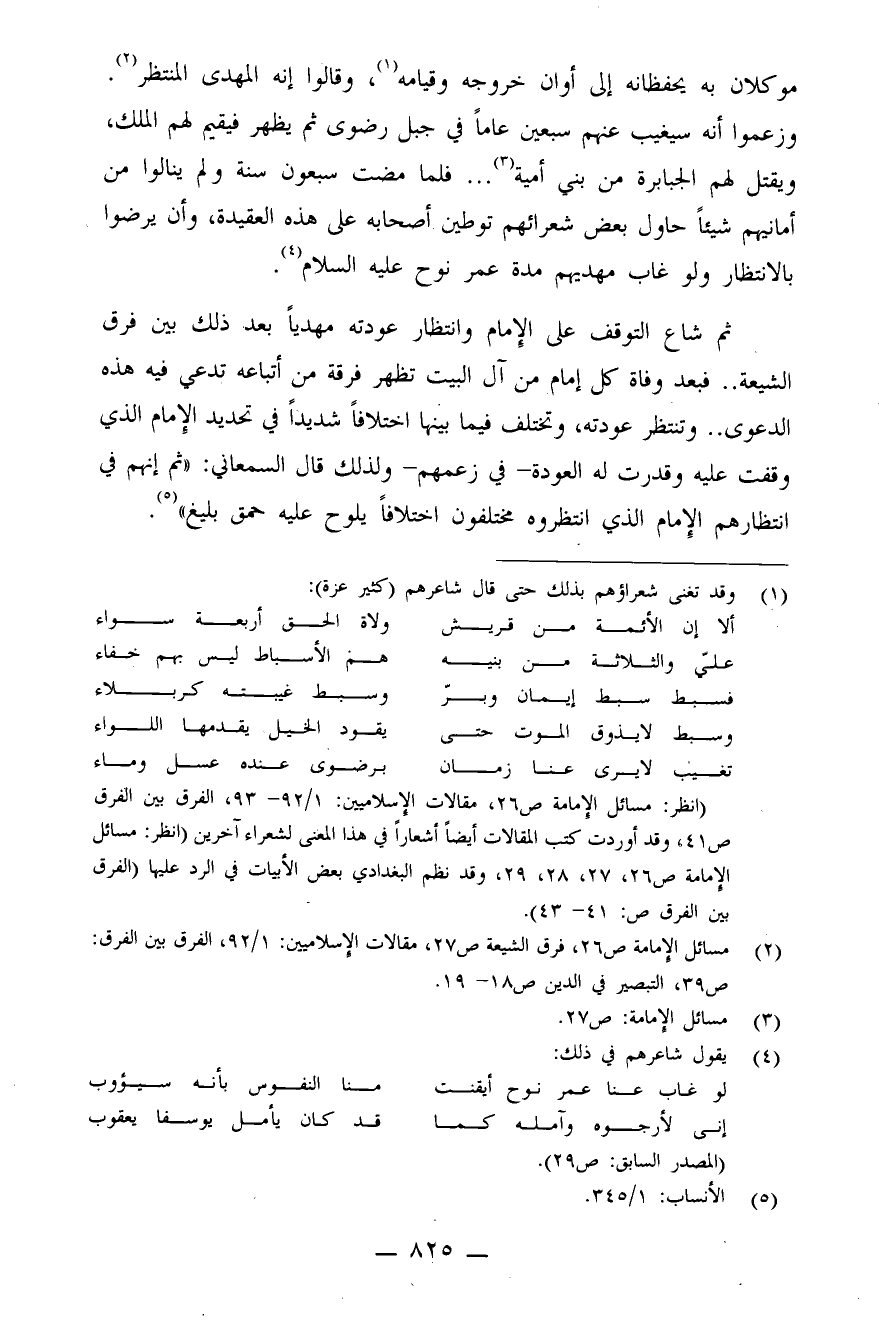 موكلان به يحفظانه إلى أوان خروجه وقيامه(١)، وقالوا إنه المهدى المنتظر(٢).
وزعموا أنه سيغيب عنهم سبعين عاماً في جبل رضوى ثم يظهر فيقيم لهم الملك،
ويقتل لهم الجبابرة من بني أمية(٣)... فلما مضت سبعون سنة ولم ينالوا من
أمانيهم شيئاً حاول بعض شعرائهم توطين أصحابه على هذه العقيدة، وأن يرضوا
بالانتظار ولو غاب مهديهم مدة عمر نوح عليه السلام(٤).
ثم شاع التوقف على الإمام وانتظار عودته مهدياً بعد ذلك بين فرق
الشيعة.. فبعد وفاة كل إمام من آل البيت تظهر فرقة من أتباعه تدعي فيه هذه
الدعوى.. وتنتظر عودته، وتختلف فيما بينها اختلافاً شديداً في تحديد الإمام الذي
وقفت عليه وقدرت له العودة– في زعمهم– ولذلك قال السمعاني: «ثم إنهم في
انتظارهم الإمام الذي انتظروه مختلفون اختلافاً يلوح عليه حمق بليغ»(٥).
(١) وقد تغنى شعراؤهم بذلك حتى قال شاعرهم (كثير عزة):
ألا إن الأئمــة مــن قريـش ولاة الحــق أربعــة ســواء
علـيّ والثـلاثـة مــن بنيـه هــم الأسبـاط ليس بهم خفاء
فسبـط سبـط إيمـان وبـرّ وسبـط غيبتـه كربـلاء
وسبـط لايـذوق المـوت حتـى يقـود الخيـل يقـدمهـا اللـواء
تغيـب لايـرى عنـا زمـان برضـوى عنـده عسـل ومـاء
(انظر: مسائل الإمامة ص٢٦، مقالات الإسلاميين: ٩٢/١– ٩٣، الفرق بين الفرق
ص٤١، وقد أوردت كتب المقالات أيضاً أشعاراً في هذا المعنى لشعراء آخرين (انظر: مسائل
الإمامة ص٢٦، ٢٧، ٢٨، ٢٩، وقد نظم البغدادي بعض الأبيات في الرد عليها (الفرق
بين الفرق ص: ٤١– ٤٣).
(٢) مسائل الإمامة ص٢٦، فرق الشيعة ص٢٧، مقالات الإسلاميين: ٩٢/١، الفرق بين الفرق:
ص٣٩، التبصير في الدين ص١٨– ١٩.
(٣) مسائل الإمامة: ص٢٧.
(٤) يقول شاعرهم في ذلك:
لو غـاب عنـا عمـر نـوح أيقنـت منـا النفـوس بأنـه سيـؤوب
إنـى لأرجـوه وآملـه كمـا قـد كـان يأمـل يوسفـا يعقوب
(المصدر السابق: ص٢٩).
(٥) الأنساب: ٣٤٥/١.
— ٨٢٥ —